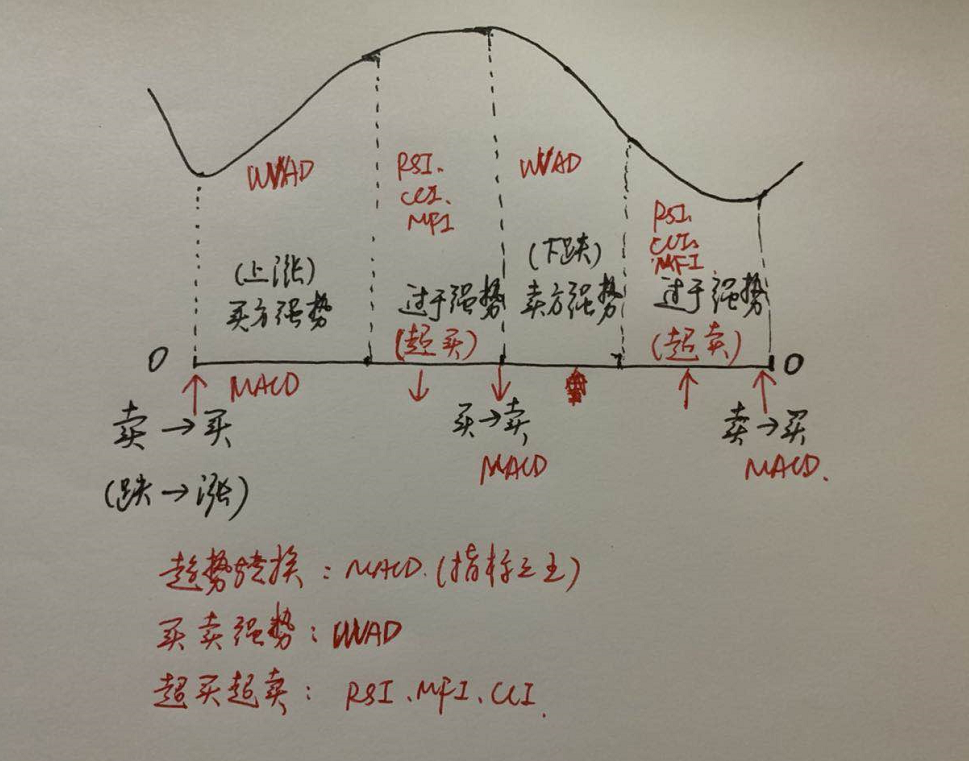 WVAD
RSI.
CCI.
MFI
WVAD
RSI.
CCI.
MFI
(上涨)
买方强势
过于强势
(超买)
(下跌)
卖方强势
过于强势
(超卖)
0
MACD
0
卖→买
(跌→涨)
买→卖
MACD
卖→买
MACD.
趋势转换：MACD.(指标之王)
买卖强势：WVAD
超买超卖：RSI、MFI、CCI.